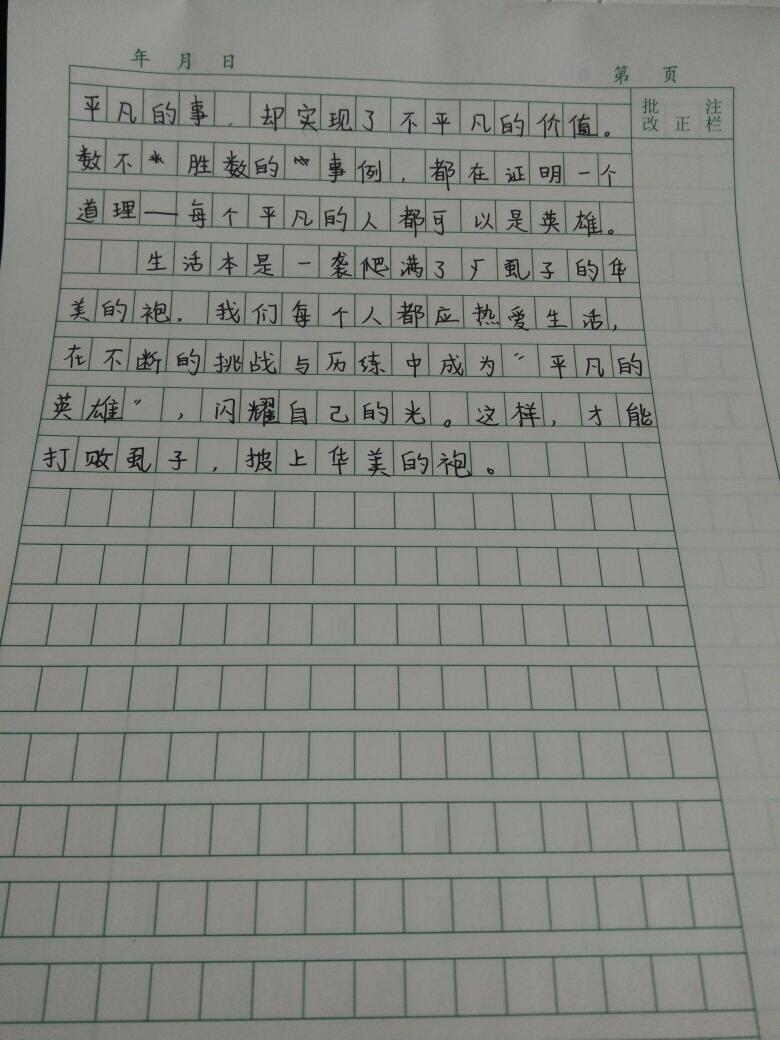 年 月 日
第 页
批改 正 注栏
平凡的事，却实现了不平凡的价值。
数不胜数的事例，都在证明一个
道理——每个平凡的人都可以是英雄。
生活本是一袭爬满了虱子的华
美的袍，我们每个人都应热爱生活，
在不断的挑战与历练中成为“平凡的
英雄”，闪耀自己的光。这样，才能
打败虱子，披上华美的袍。